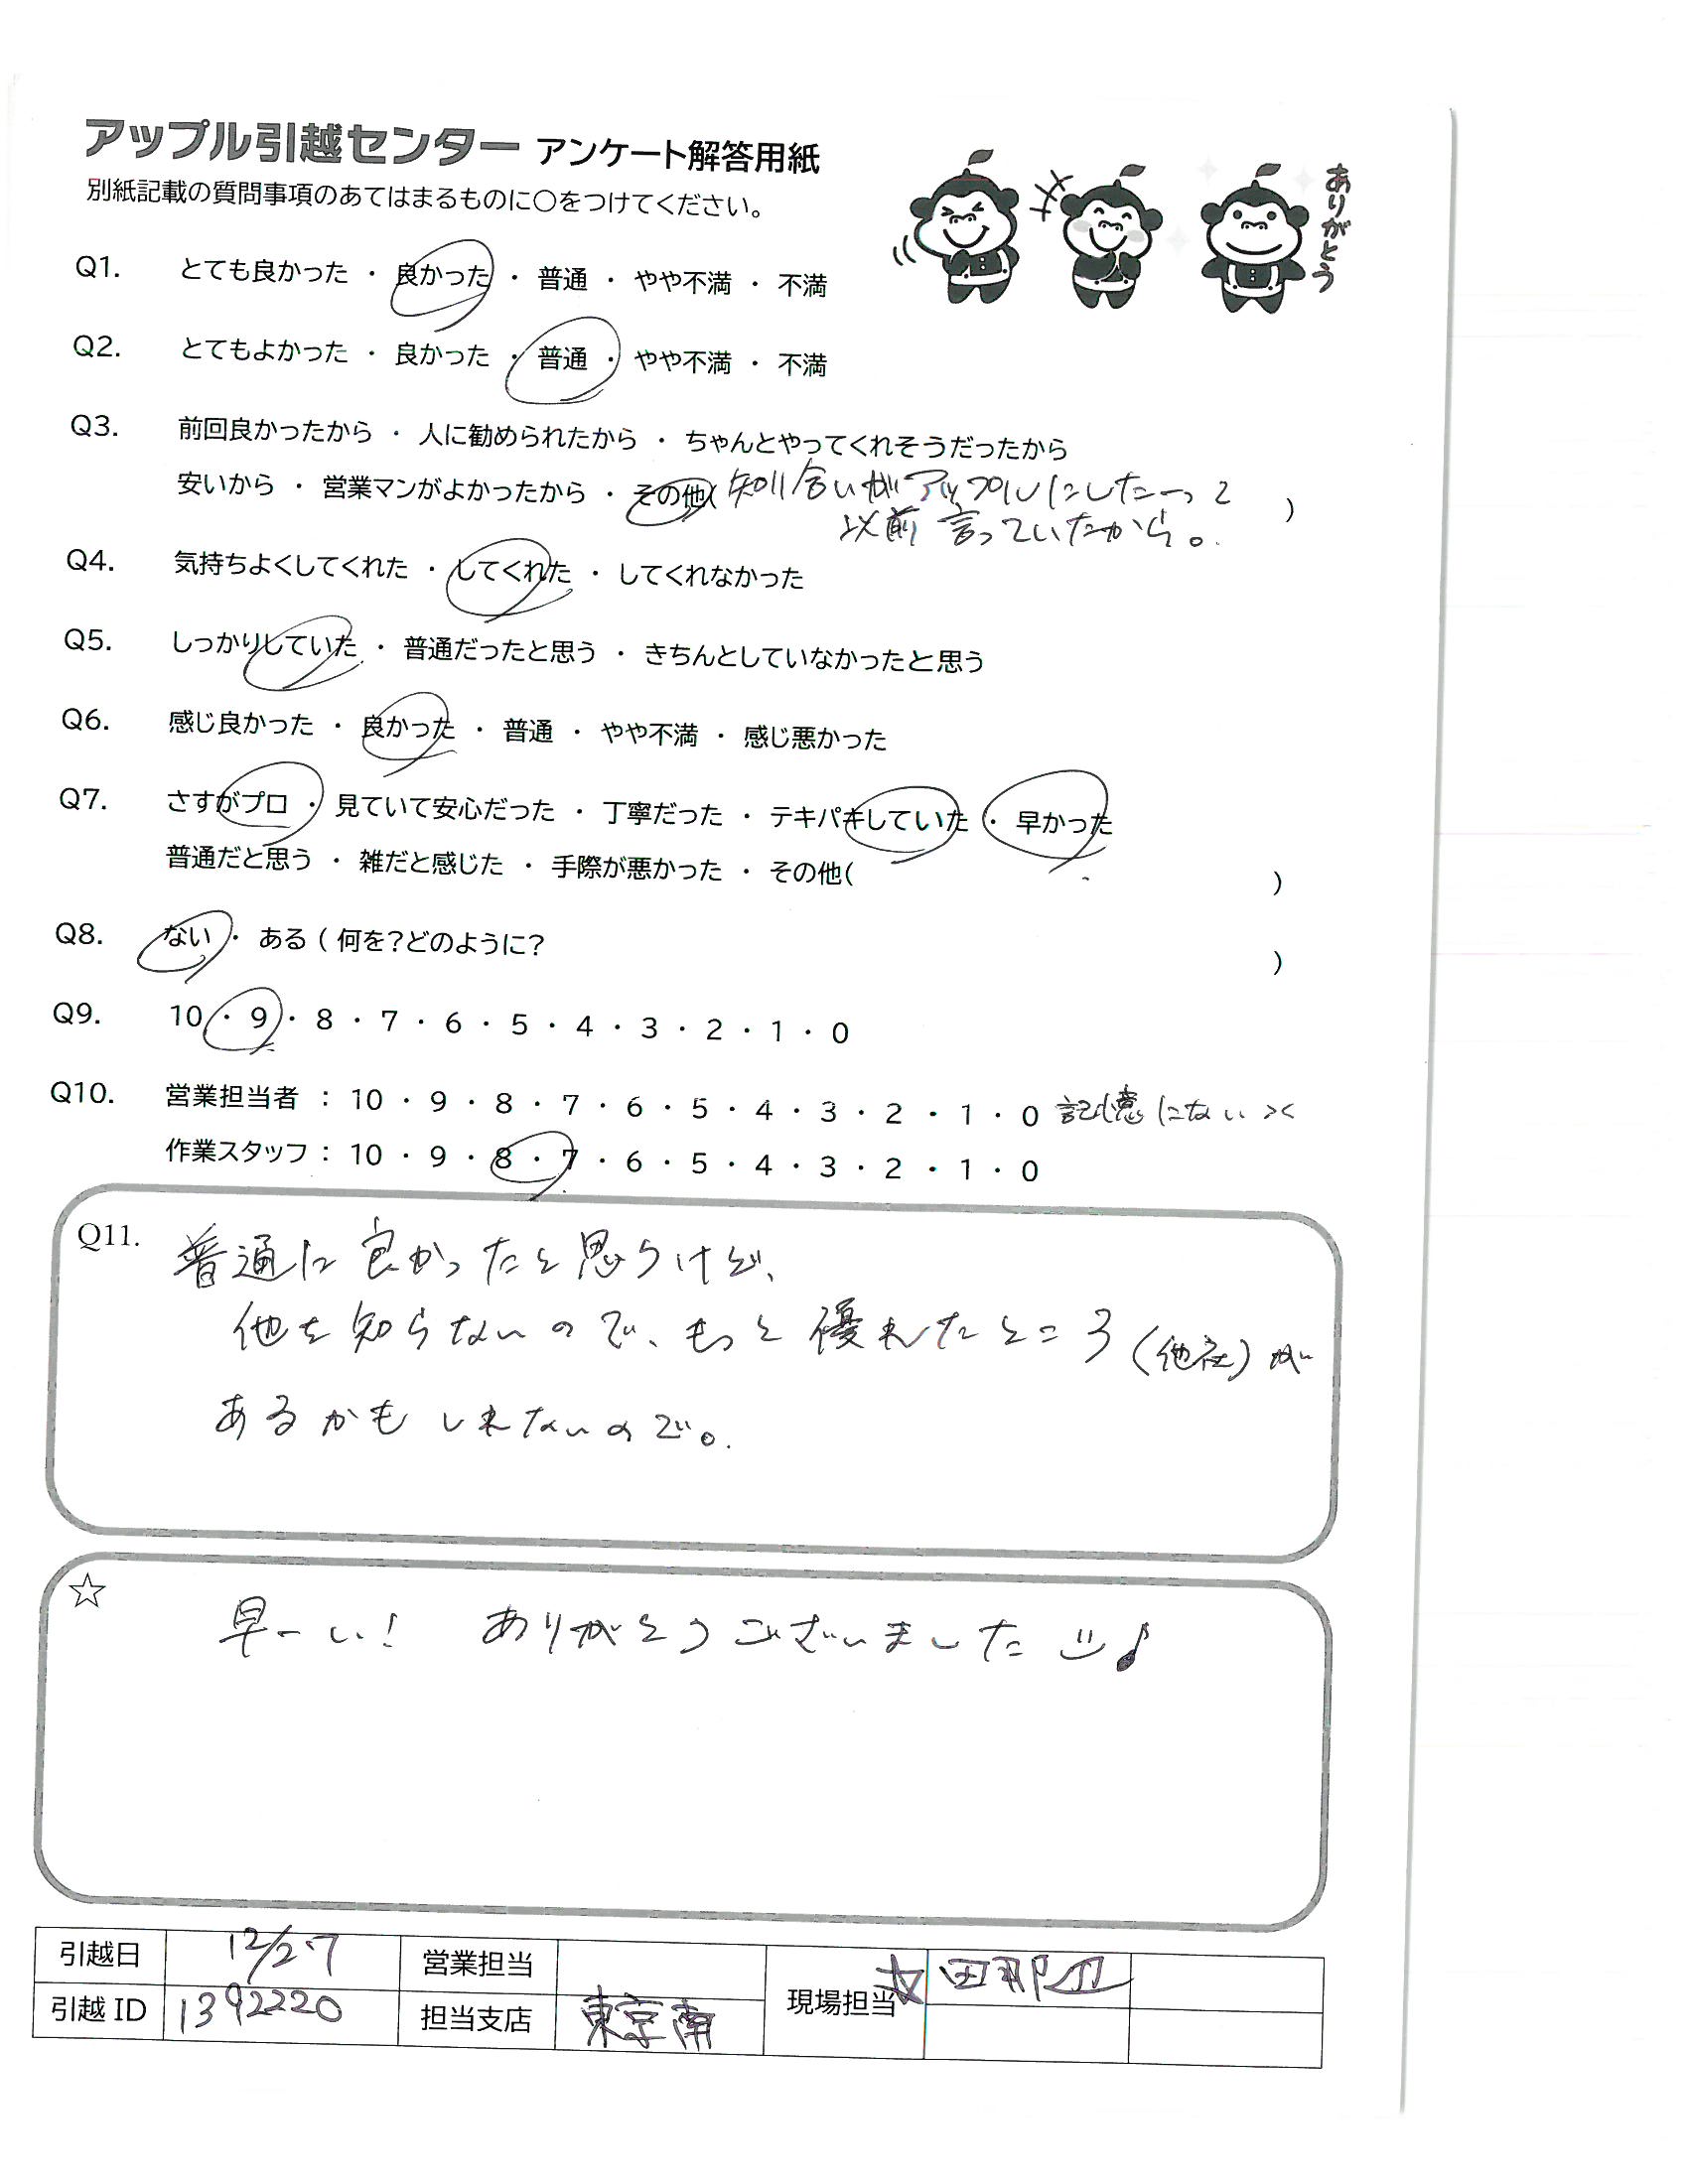 アップル引越センター アンケート解答用紙
別紙記載の質問事項のあてはまるものに〇をつけてください。
ありがとう
Q1. とても良かった ・ 良かった ・ 普通 ・ やや不満 ・ 不満
Q2. とてもよかった ・ 良かった ・ 普通 ・ やや不満 ・ 不満
Q3. 前回良かったから ・ 人に勧められたから ・ ちゃんとやってくれそうだったから
安いから ・ 営業マンがよかったから ・ その他( 知り合いがアップルにしたーって
以前言っていたから。 )
Q4. 気持ちよくしてくれた ・ してくれた ・ してくれなかった
Q5. しっかりしていた ・ 普通だったと思う ・ きちんとしていなかったと思う
Q6. 感じ良かった ・ 良かった ・ 普通 ・ やや不満 ・ 感じ悪かった
Q7. さすがプロ ・ 見ていて安心だった ・ 丁寧だった ・ テキパキしていた ・ 早かった
普通だと思う ・ 雑だと感じた ・ 手際が悪かった ・ その他( )
Q8. ない ・ ある ( 何を?どのように? )
Q9. 10 ・ 9 ・ 8 ・ 7 ・ 6 ・ 5 ・ 4 ・ 3 ・ 2 ・ 1 ・ 0
Q10. 営業担当者 : 10 ・ 9 ・ 8 ・ 7 ・ 6 ・ 5 ・ 4 ・ 3 ・ 2 ・ 1 ・ 0 記憶にない ><
作業スタッフ : 10 ・ 9 ・ 8 ・ 7 ・ 6 ・ 5 ・ 4 ・ 3 ・ 2 ・ 1 ・ 0
Q11. 普通に良かったと思うけど、
他を知らないので、もっと優れたところ(他社)が
あるかもしれないので。
☆ 早ーい! ありがとうございました♪
引越日 12/27 営業担当 現場担当 田那辺
引越ID 1392220 担当支店 東京南